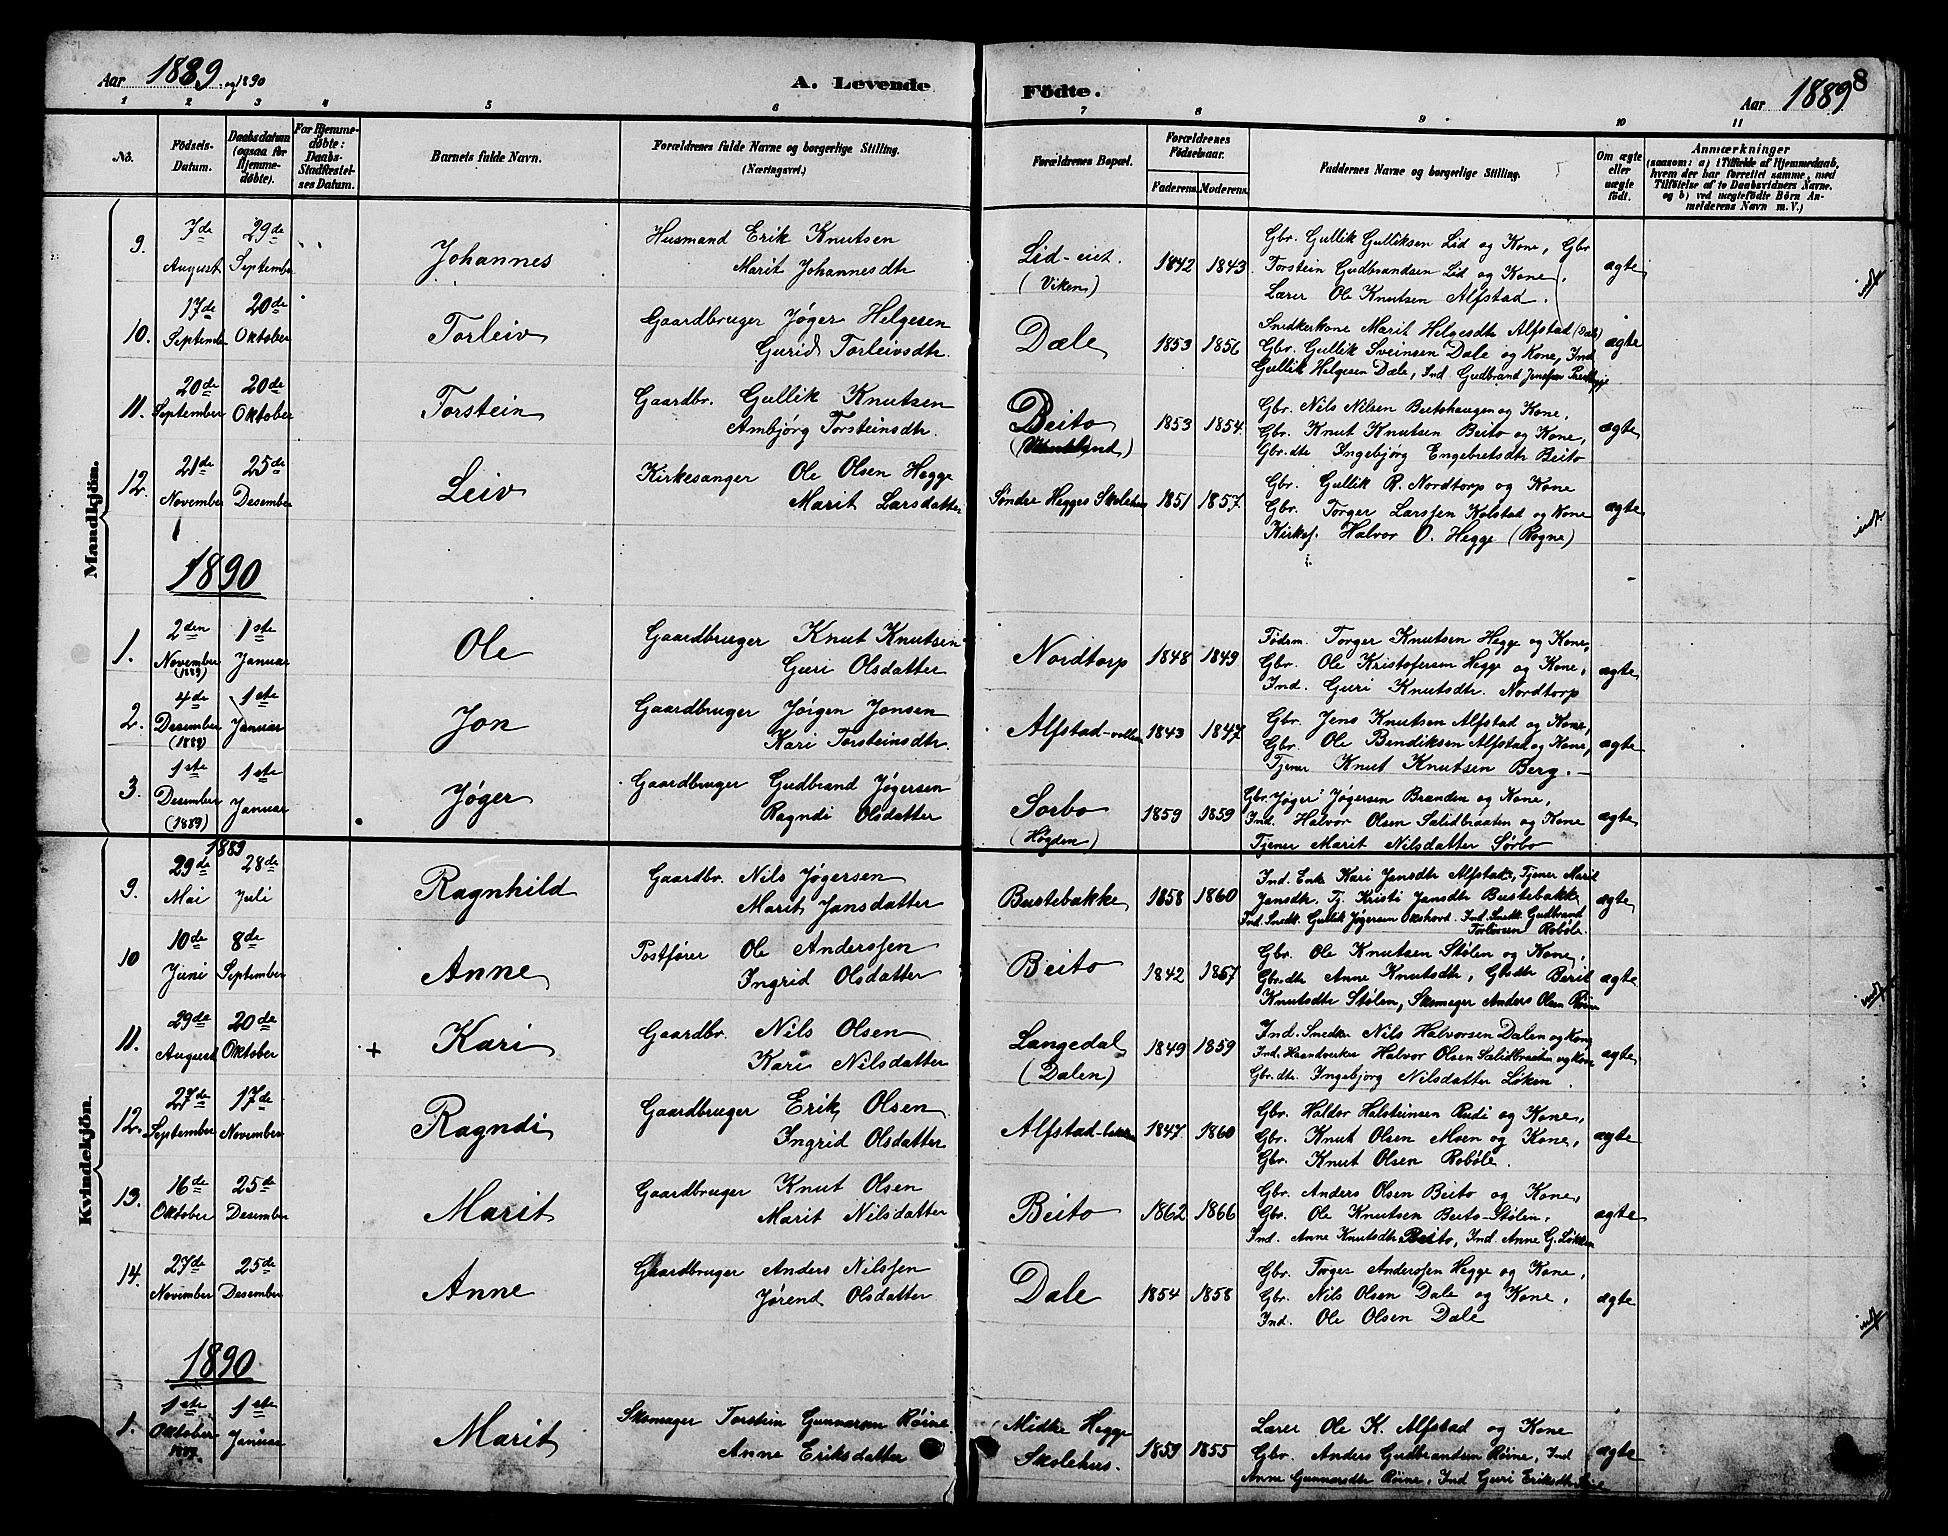 Aar 1889 og 1890 A. Levende Födte. Aar 1889 8
1 2 3 4 5 6 7 8 9 10 11
No. Födsels-Datum. Daabsdatum (ogsaa for Hjemmedöbte). For Hjemmedöbte: Daabs-Stadfæstelses Datum. Barnets fulde Navn. Forældrenes fulde Navne og borgerlige Stilling. (Næringsvei.) Forældrenes Bopæl. Forældrenes Födselsaar. Faderens. Moderens. Faddernes Navne og borgerlige Stilling. Om ægte eller uægte födt. Anmærkninger (saasom: a) i Tilfælde af Hjemmedaab, hvem der har forrettet samme, med Tilföielse af to Daabsvidners Navne. og b) ved uægtefödte Börn Anmelderens Navn m. V.)
Mandkjön.
9. 7de August 29de September Johannes Husmand Erik Knutsen Marit Johannesdtr Lid-eiet. (Viken) 1842 1843 Gbr. Gullik Gulliksen Lid og Kone, Gbr Torstein Gudbrandsen Lid og Kone, Lærer Ole Knutsen Alfstad. ægte
10. 17de September 20de Oktober Torleiv Gaardbruger Jøger Helgesen Gurid Torleivsdtr. Dæle 1853 1856 Snedkerkone Marit Helgesdtr Alfstad Gbr. Gullik Sveinsen Dale og Kone, Ind Gullik Helgesen Dæle, Ind Gudbrand Jensen ægte
11. 20de September 20de Oktober Torstein Gaardbr. Gullik Knutsen Ambjørg Torsteinsdtr. Beito 1853 1854 Gbr. Nils Nilsen Beitohaugen og Kone, Gbr. Knut Knutsen Beito og Kone, Gbr.dtr Ingebjörg Engebretsdtr Beito ægte
12. 21de November 25de Desember Leiv Kirkesanger Ole Olsen Hegge Marit Larsdatter Søndre Hegges Skolehus 1851 1857 Gbr. Gullik R. Nordtorp og Kone Gbr. Torger Larssen Kolstad og Kone Kirkes. Halvor O. Hegge (Rogne) ægte
1890
1. 2den November (1889) 1ste Januar Ole Gaardbruger Knut Knutsen Guri Olsdatter Nordtorp 1848 1849 Fødsm. Torger Knutsen Hegge og Kone, Gbr. Ole Kristofersen Hegge og Kone, Ind. Guri Knutsdtr. Nordtorp ægte
2. 4de Desember (1889) 1ste Januar Jon Gaardbruger Jørgen Jonsen Kari Torsteinsdtr. Alfstad-vollen 1843 1847 Gbr. Jens Knutsen Alfstad og Kone, Gbr. Ole Bendiksen Alfstad og Kone, Tjener Knut Knutsen Berg. ægte
3. 1ste Desember (1889) 1ste Januar Jøger Gaardbruger Gudbrand Jøgersen Ragndi Olsdatter Sorbo (Høgden) 1859 1859 Gbr. Jøger Jøgersen Branden og Kone, Ind. Halvor Olsen Salidbraaten og Kone Tjener Marit Nilsdatter Sørbo ægte
Kvindekjön.
1889
9. 29de Mai 28de Juli Ragnhild Gaardbr. Nils Jøgersen Marit Jansdatter Bustebakke 1858 1860 Ind. Enke Kari Jansdtr Alfstad, Tjener Marit Jansdtr. Tj. Kristi Jansdtr Bustebakke Ind. Snedk. Gullik Jøgersen Okshovd. Ind. Snedk. Gudbrand Torleivsen Robøle. ægte
10 10de Juni 8de September Anne Postfører Ole Anderssen Ingrid Olsdatter Beito 1842 1857 Gbr. Ole Knutsen Stølen og Kone, Gbr.dtr Anne Knutsdtr, Gbdtr Berit Knutsdtr Stølen, Skomager Anders Olsen Røine ægte
11. 29de August 20de Oktober + Kari Gaardbr. Nils Olsen Kari Nilsdatter Langedal (Dalen) 1849 1859 Ind. Snedker Nils Halvorsen Dalen og Kone Ind. Haandverker Halvor Olsen Salidbraaten og Kone Gbr.dtr. Ingebjörg Nilsdatter Løken. ægte
12. 27de September 17de November Ragndi Gaardbruger Erik Olsen Ingrid Olsdatter Alfstad- 1847 1860 Gbr. Haldor Halsteinsen Rudi og Kone, Gbr. Knut Olsen Moen og Kone, Gbr. Knut Olsen Robøle. ægte
13. 16de Oktober 25de Desember Marit Gaardbruger Knut Olsen Marit Nilsdatter Beito 1862 1866 Gbr. Anders Olsen Beito og Kone, Gbr. Ole Knutsen Beito-Stølen, Ind. Anne Knutsdtr Beito, Ind. Anne G. Løken ægte
14. 27de November 25de Desember Anne Gaardbruger Anders Nilssen Jørend Olsdatter Dale 1854 1858 Gbr. Torger Anderssen Hegge og Kone, Gbr. Nils Olsen Dale og Kone, Ind. Ole Olsen Dale ægte
1890
1. 1ste Oktober 1889. 1ste Januar Marit Skomager Torstein Gunnarson Røine Anne Eriksdatter Midtre Hegge Skolehus. 1859 1855 Lærer Ole K. Alfstad og Kone Gbr. Anders Gudbrandsen Røine, Ind Anne Gunnarsdtr Røine, Ind Guri Eriksdtr ægte